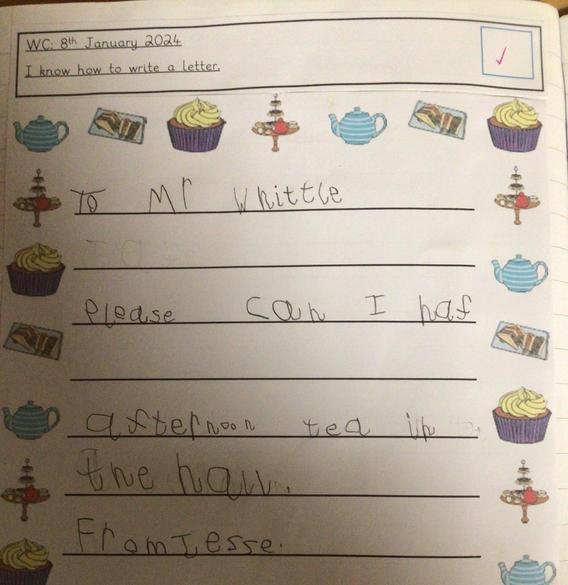 WC: 8th January 2024
I know how to write a letter.
To Mr Whittle
please can I haf
afternoon tea in
the hall.
From Jesse.